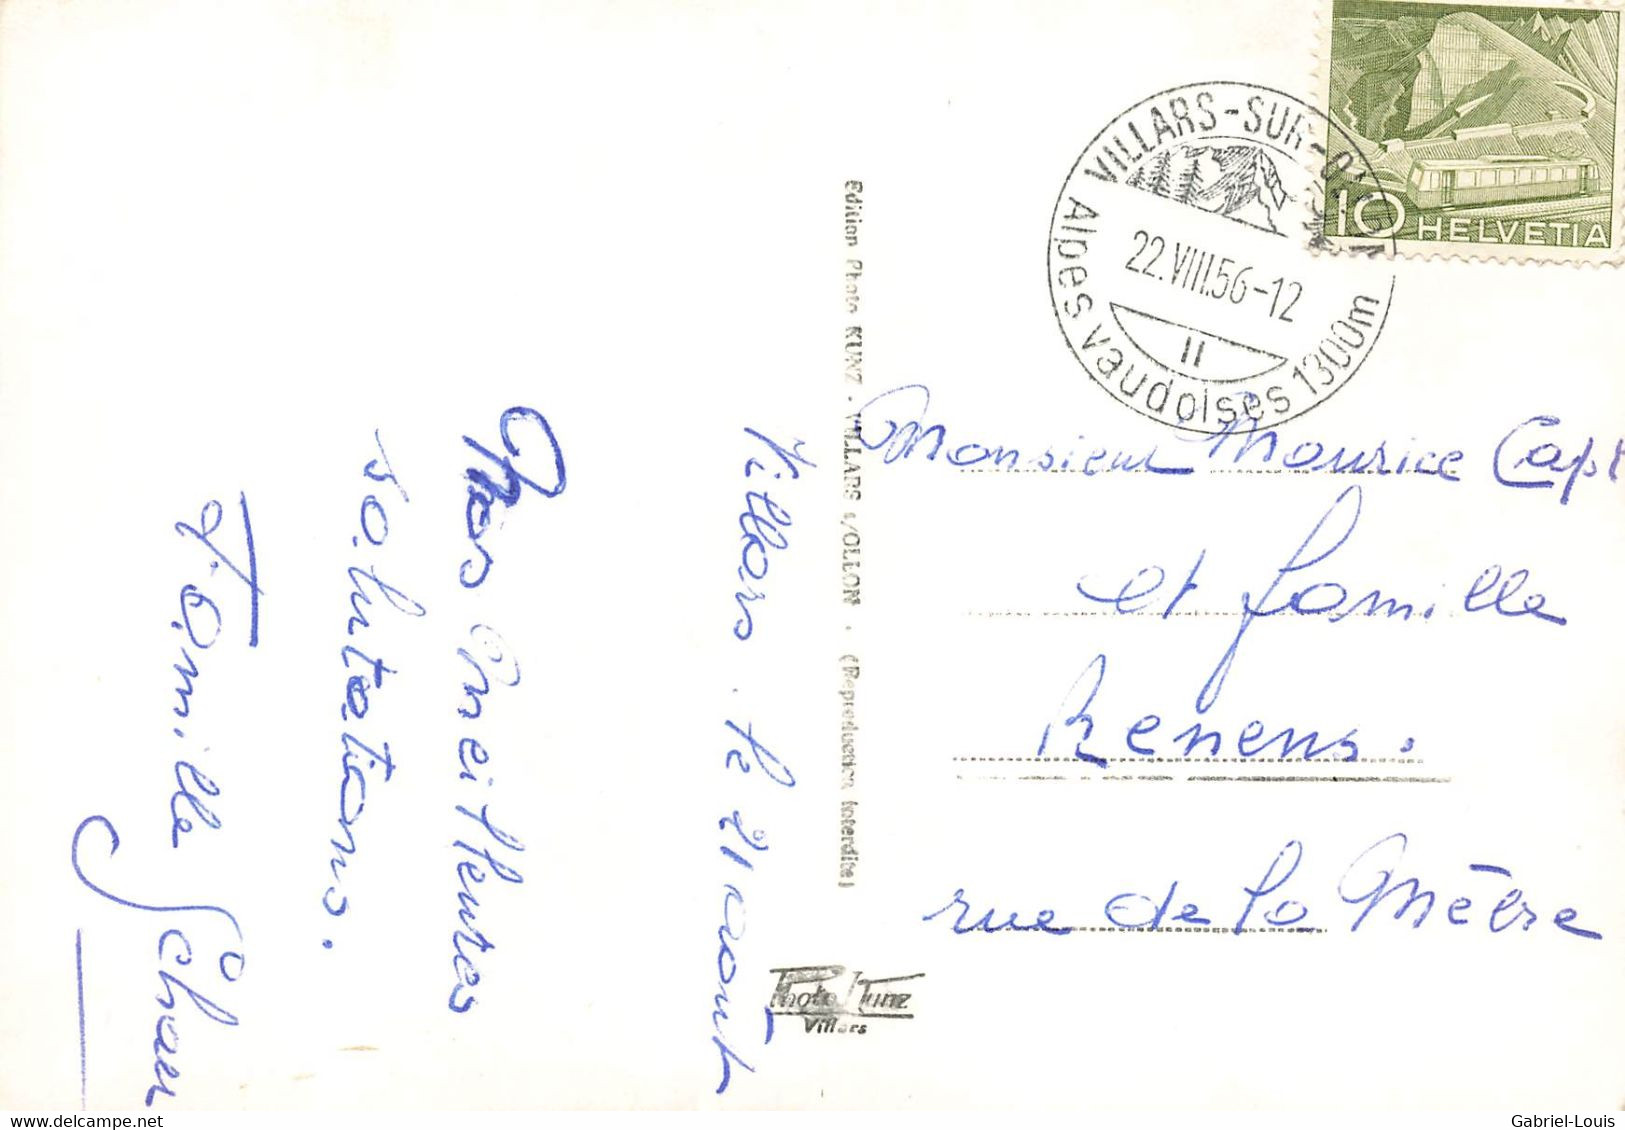 Villars. le 21 août
Nos meilleures
salutations.
Famille
VILLARS-SUR-OLLON
Alpes vaudoises 1300m
22.VIII.56-12
II
10 HELVETIA
Edition Photo KUNZ - VILLARS s/OLLON - (Reproduction interdite)
Photo Kunz
Villars
Monsieur Maurice Capt
et famille
Renens.
rue de la Mèbre
www.delcampe.net
Gabriel-Louis